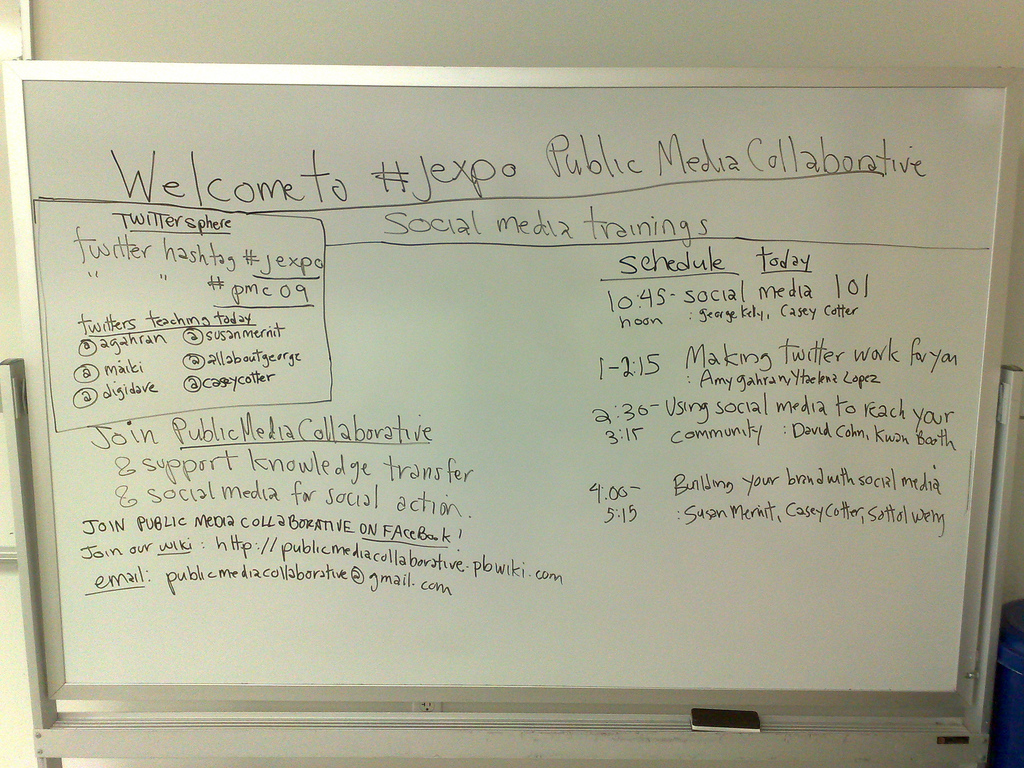 Welcome to #jexpo Public Media Collaborative
Social media trainings
Twittersphere
twitter hashtag #jexpo
" " #pmc09
twitters teaching today
@agahran @susanmernit
@maiki @allaboutgeorge
@digidave @caseycotter
Join PublicMediaCollaborative
& support knowledge transfer
& social media for social action.
JOIN PUBLIC MEDIA COLLABORATIVE ON FACebook!
Join our wiki: http://publicmediacollaborative.pbwiki.com
email: publicmediacollaborative@gmail.com
schedule today
10:45- social media 101
noon : george Kelly, Casey Cotter
1-2:15 Making twitter work for you
: Amy gahran, Lopez
2:30- Using social media to reach your
3:15 community : David Cohn, Kwan Booth
4:00- Building your brand with social media
5:15 : Susan Mernit, Casey Cotter,